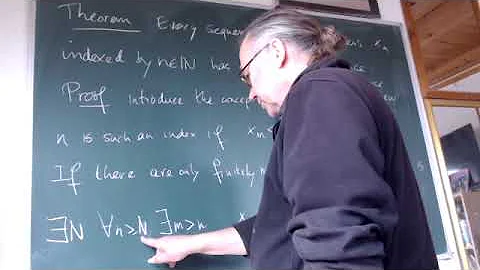 Theorem Every seque xₙ
indexed by n∈ℕ has
Proof Introduce the conce ew
n is such an index if xₘ
If there are only finitely m
∃N ∀n>N ∃m>n x